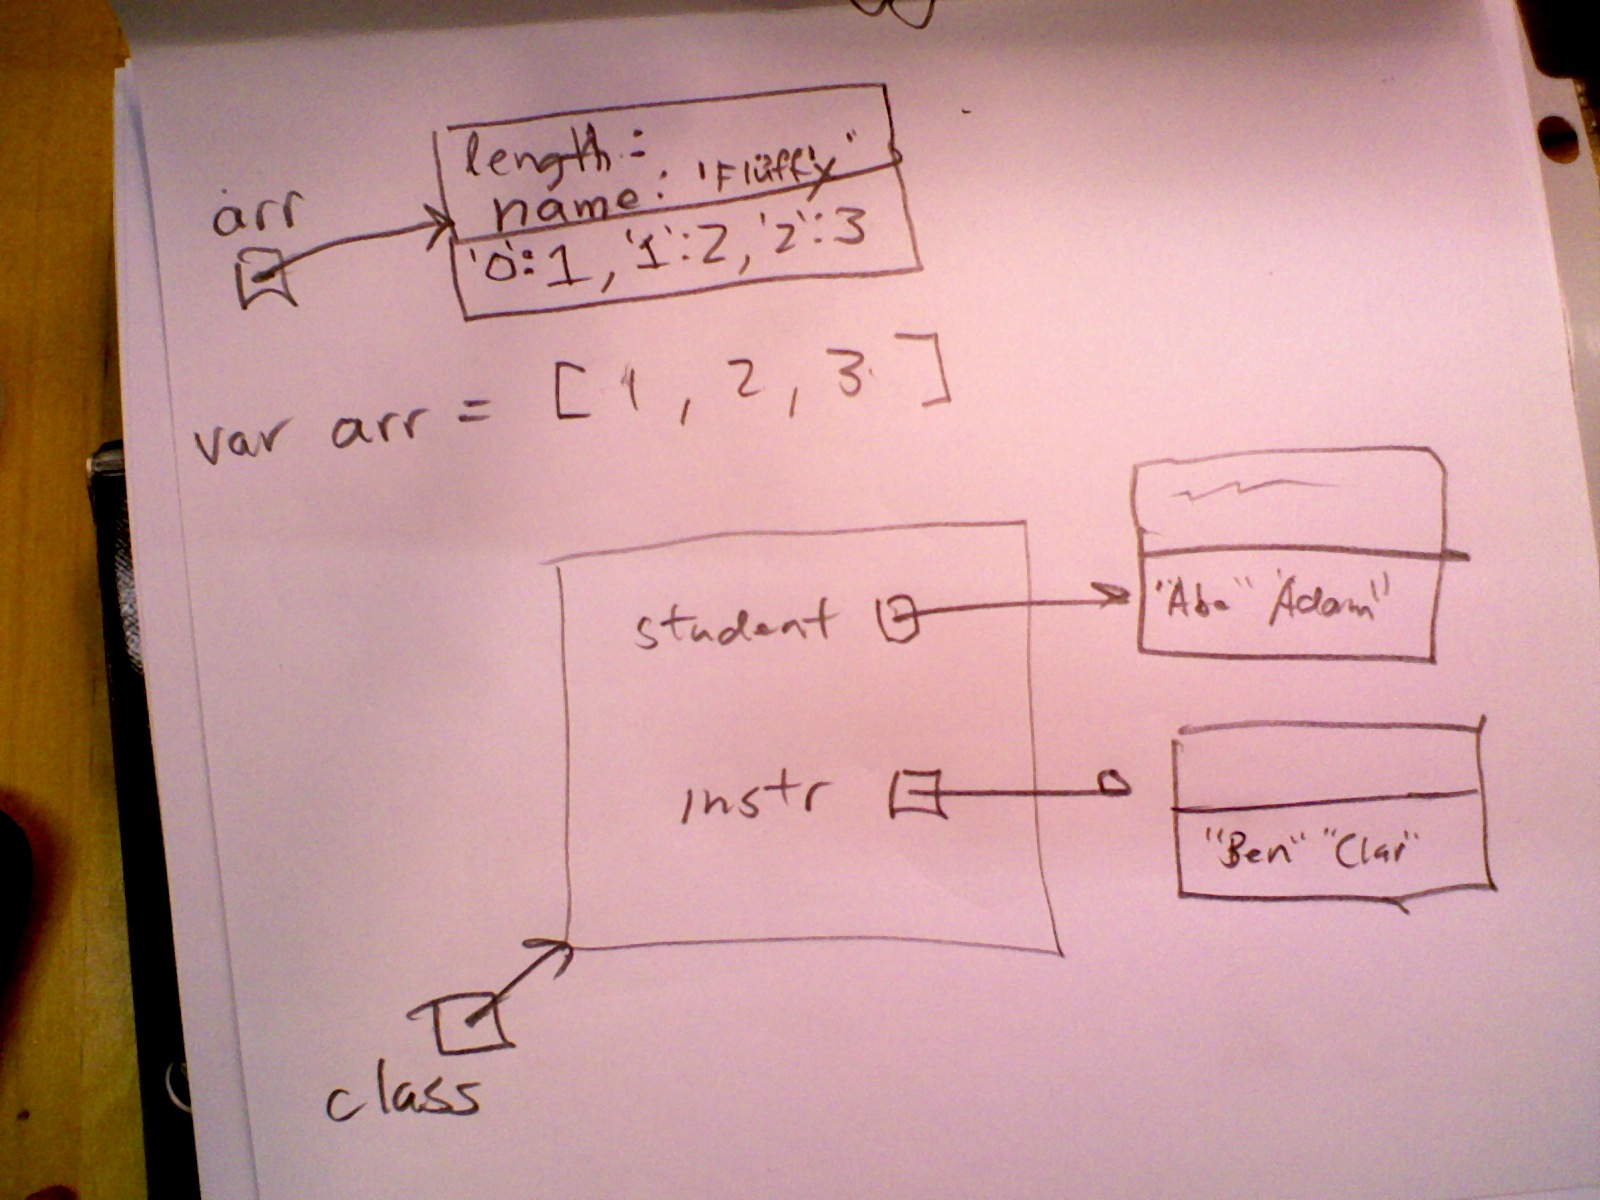 length:
name: "Fluffy"
arr
'0':1, '1':2, '2':3
var arr = [1, 2, 3]
student
"Abe" "Adam"
instr
"Ben" "Clar"
class